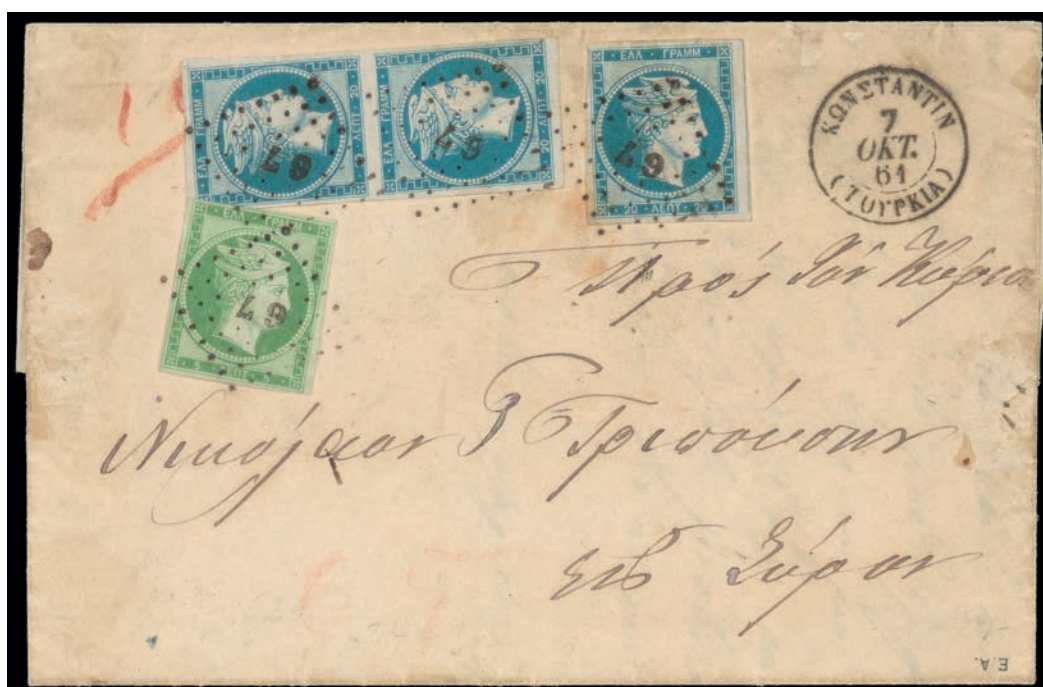 ΕΛΛ · ΓΡΑΜΜ
20 · ΛΕΠΤ · 20
67
ΕΛΛ · ΓΡΑΜΜ
20 · ΛΕΠΤ · 20
67
ΕΛΛ · ΓΡΑΜΜ
20 · ΛΕΠΤ · 20
67
ΚΩΝΣΤΑΝΤΙΝ
7
ΟΚΤ.
61
(ΤΟΥΡΚΙΑ)
ΕΛΛ · ΓΡΑΜΜ
5 · ΛΕΠΤ · 5
67
Πρός Τόν Κύριον
Νικόλαον
εις Σύραν
E.A.